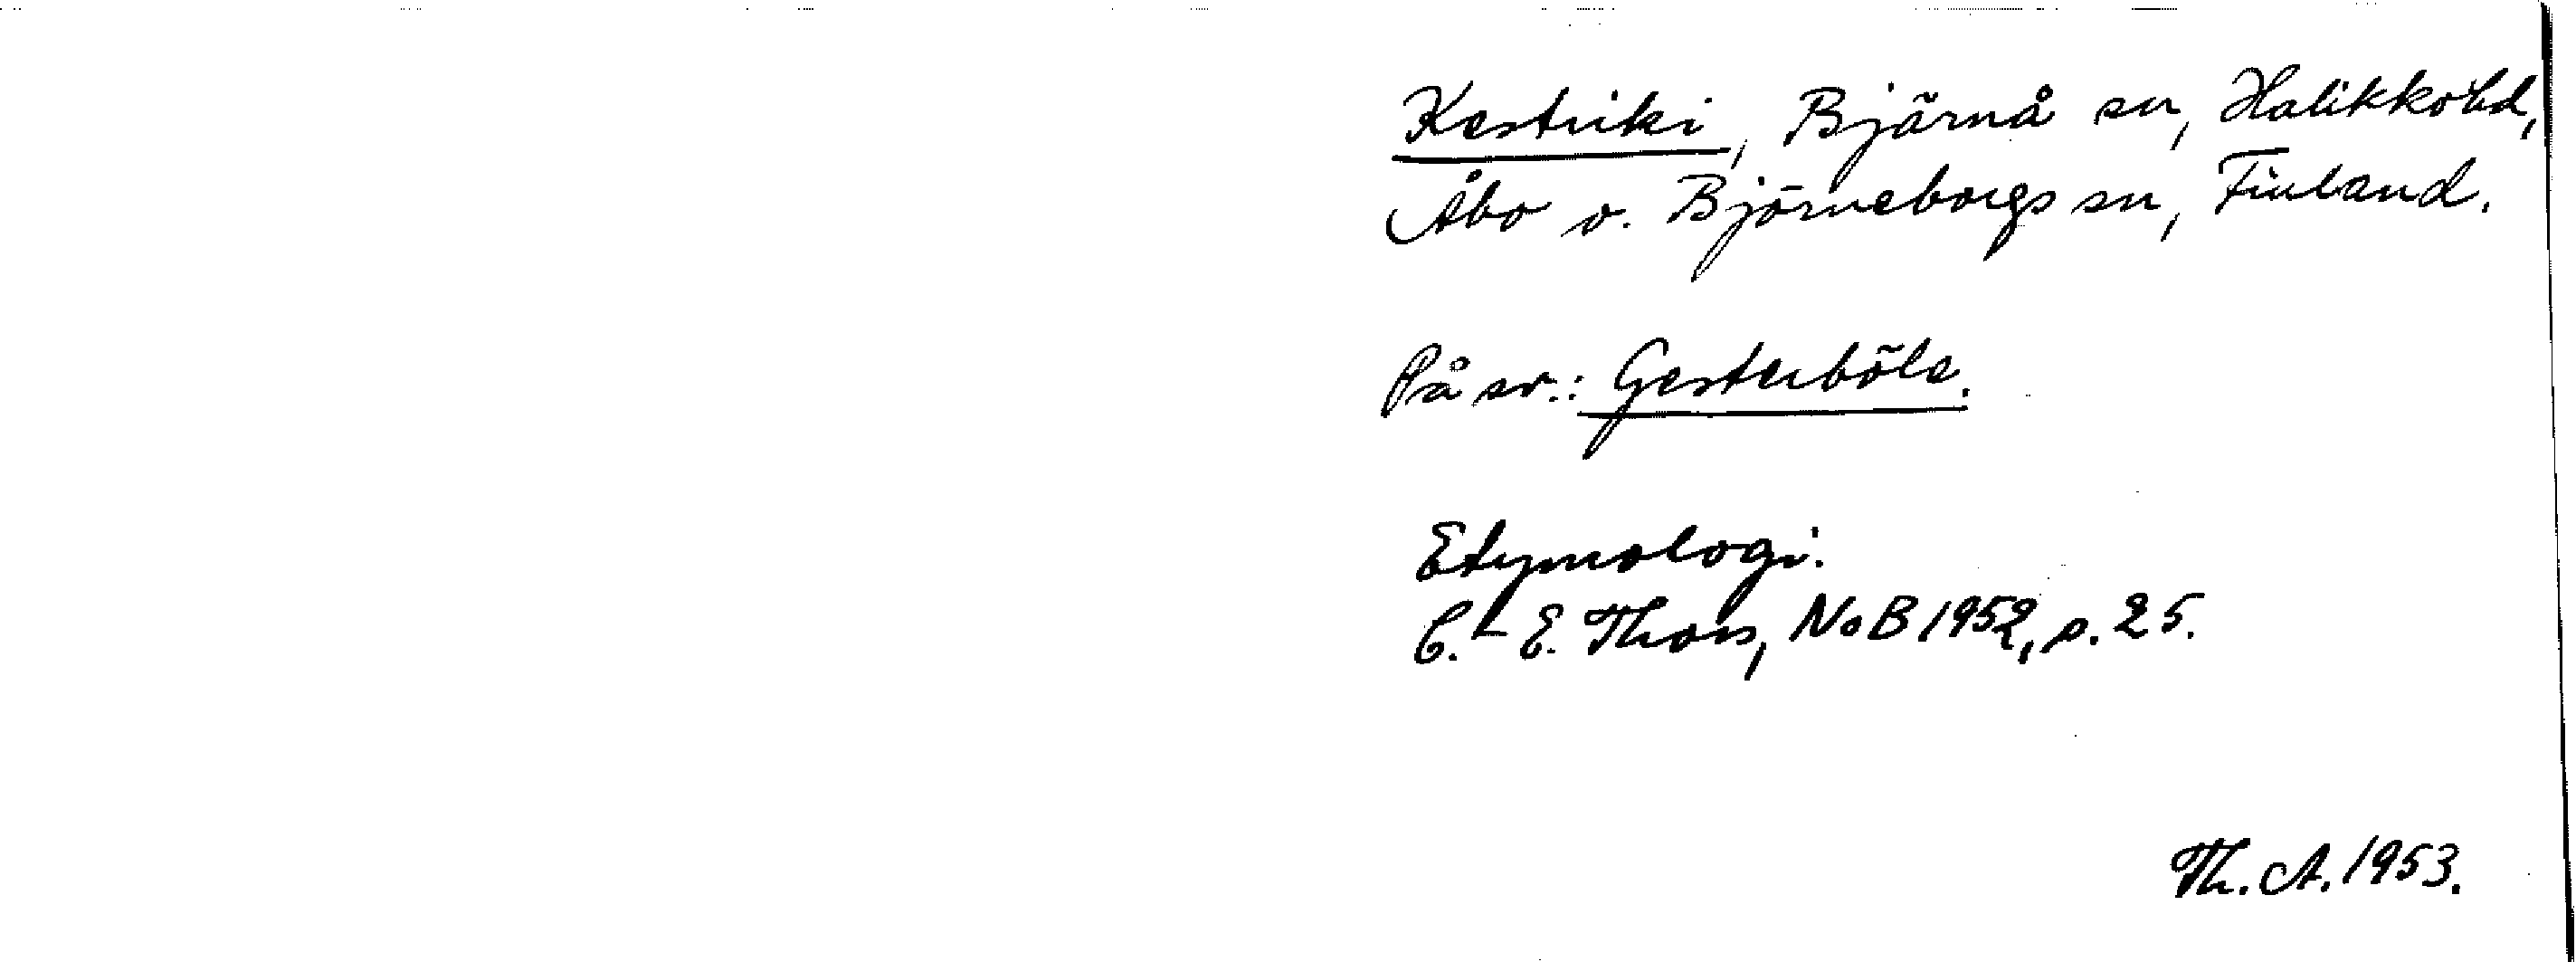 Kestriki, Bjärnå sn, Halikko hd,
Åbo o. Björneborgs sn, Finland.
På sv.: Gesterböle.
Etymologi:
C.-E. Thors, NoB 1952, p. 25.
Th. A. 1953.